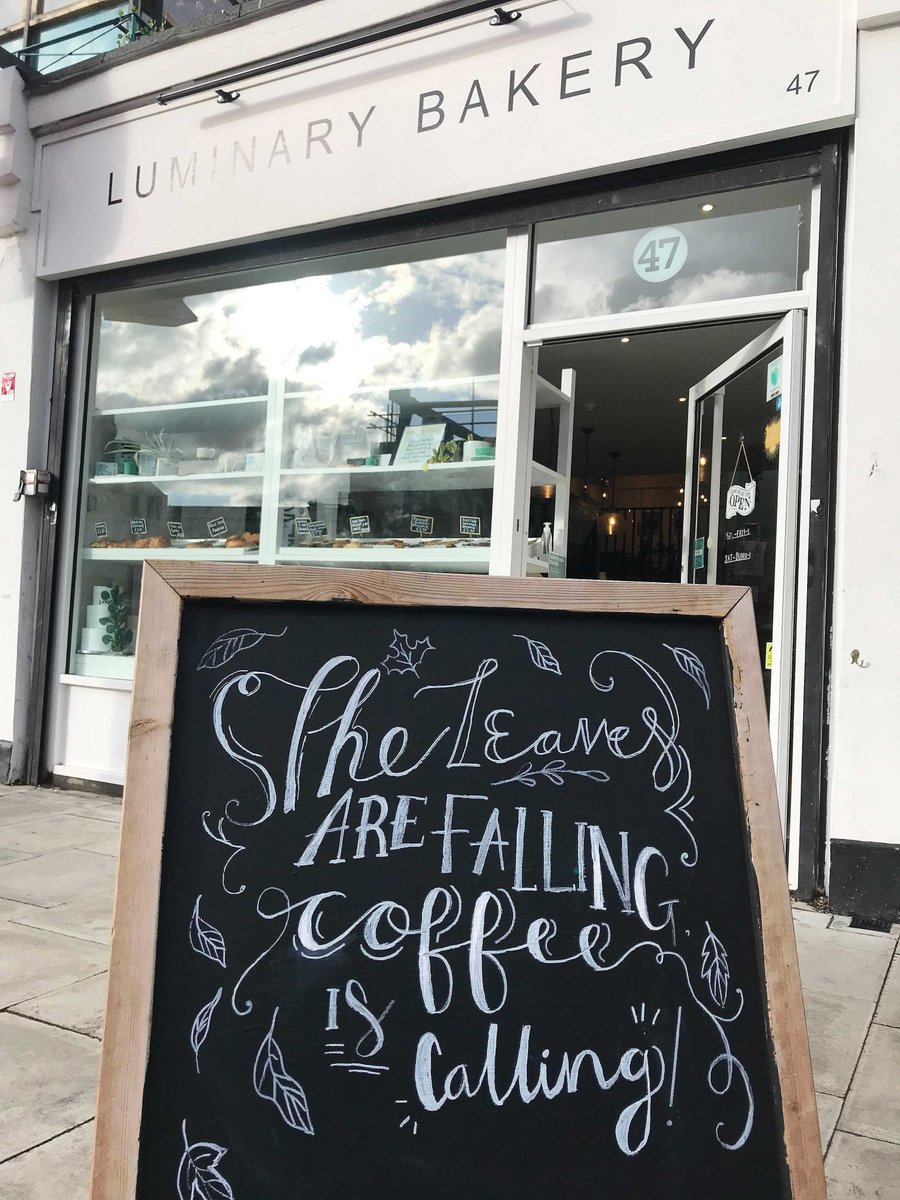 LUMINARY BAKERY
47
47
OPEN
The Leaves
ARE FALLING,
coffee
IS
Calling!